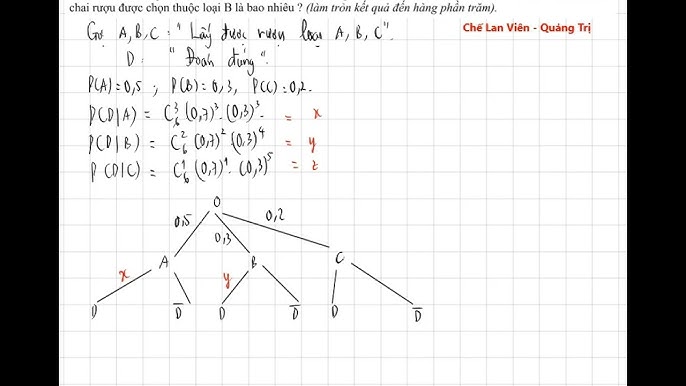 chai rượu được chọn thuộc loại B là bao nhiêu ? (làm tròn kết quả đến hàng phần trăm).
Chế Lan Viên - Quảng Trị
Gọi A, B, C : " Lấy được rượu loại A, B, C".
D : " Đoán đúng".
P(A) = 0,5 ; P(B) = 0,3 , P(C) = 0,2.
P(D|A) = C₆³ (0,7)³. (0,3)³. = x
P(D|B) = C₆² (0,7)² (0,3)⁴ = y
P(D|C) = C₆¹ (0,7)¹. (0,3)⁵ = z
O
0,5 0,3 0,2
A B C
x y
D D̅ D D̅ D D̅